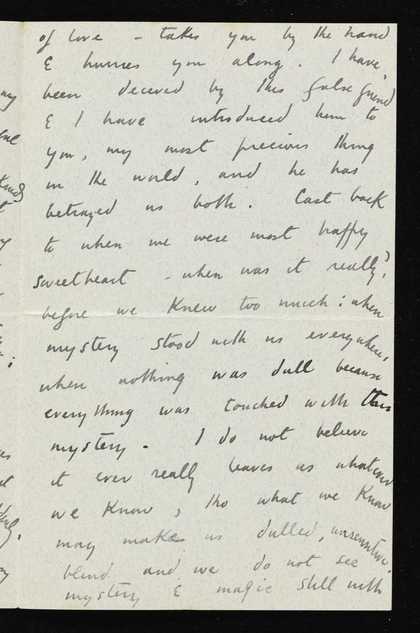 of love – takes you by the hand
& hurries you along. I have,
been deceived by this false friend
& I have introduced him to
you, my most precious thing
in the world, and he has
betrayed us both. Cast back
to when we were most happy
sweetheart – when was it really?
before we knew too much: when
mystery stood with us everywhere,
when nothing was dull because
everything was touched with this
mystery – I do not believe
it ever really leaves us whatever
we know, tho what we know
may makes us dulled, unsensitive,
blind and we do not see
mystery & magic still with